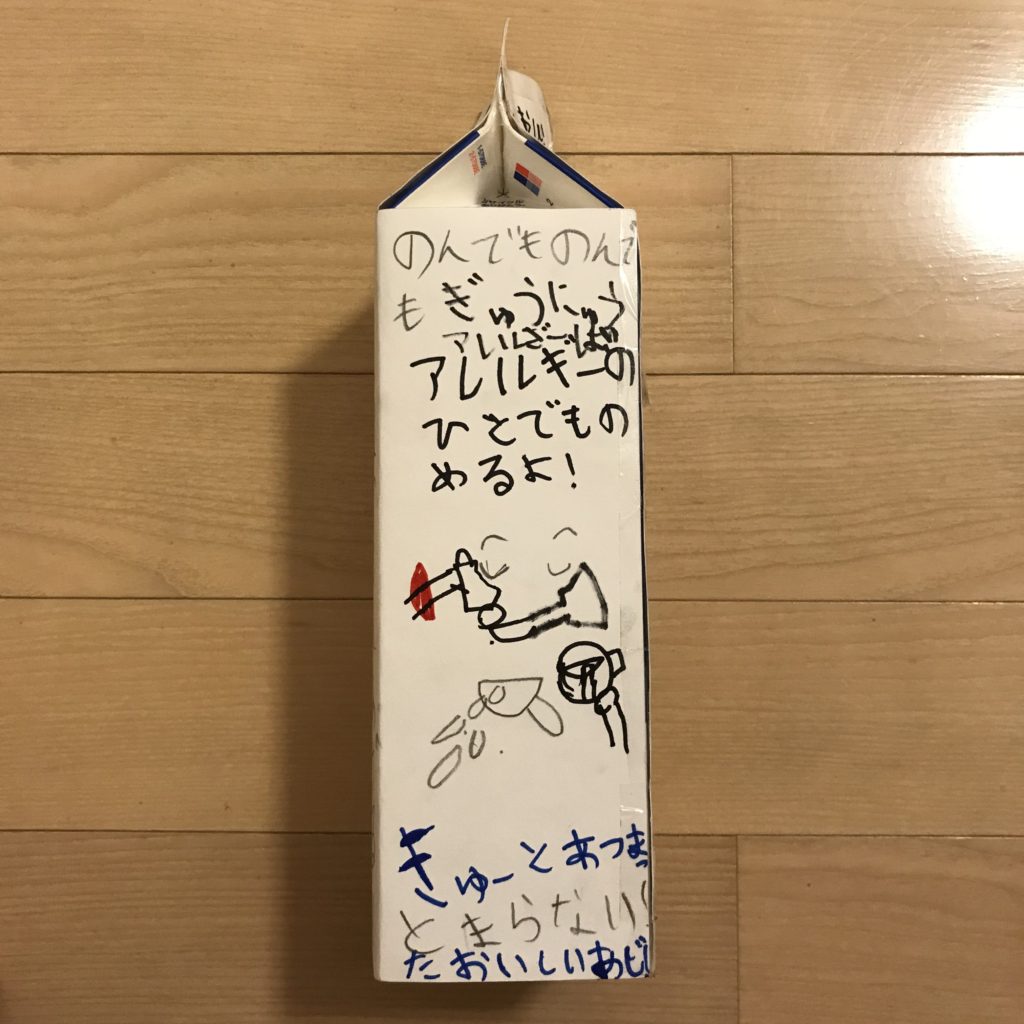 おいし
のんでものんで
も ぎゅうにゅう
アレルギーの
ひとでもの
めるよ!
きゅーとあつまっ
とまらない!
たおいしいあじ!